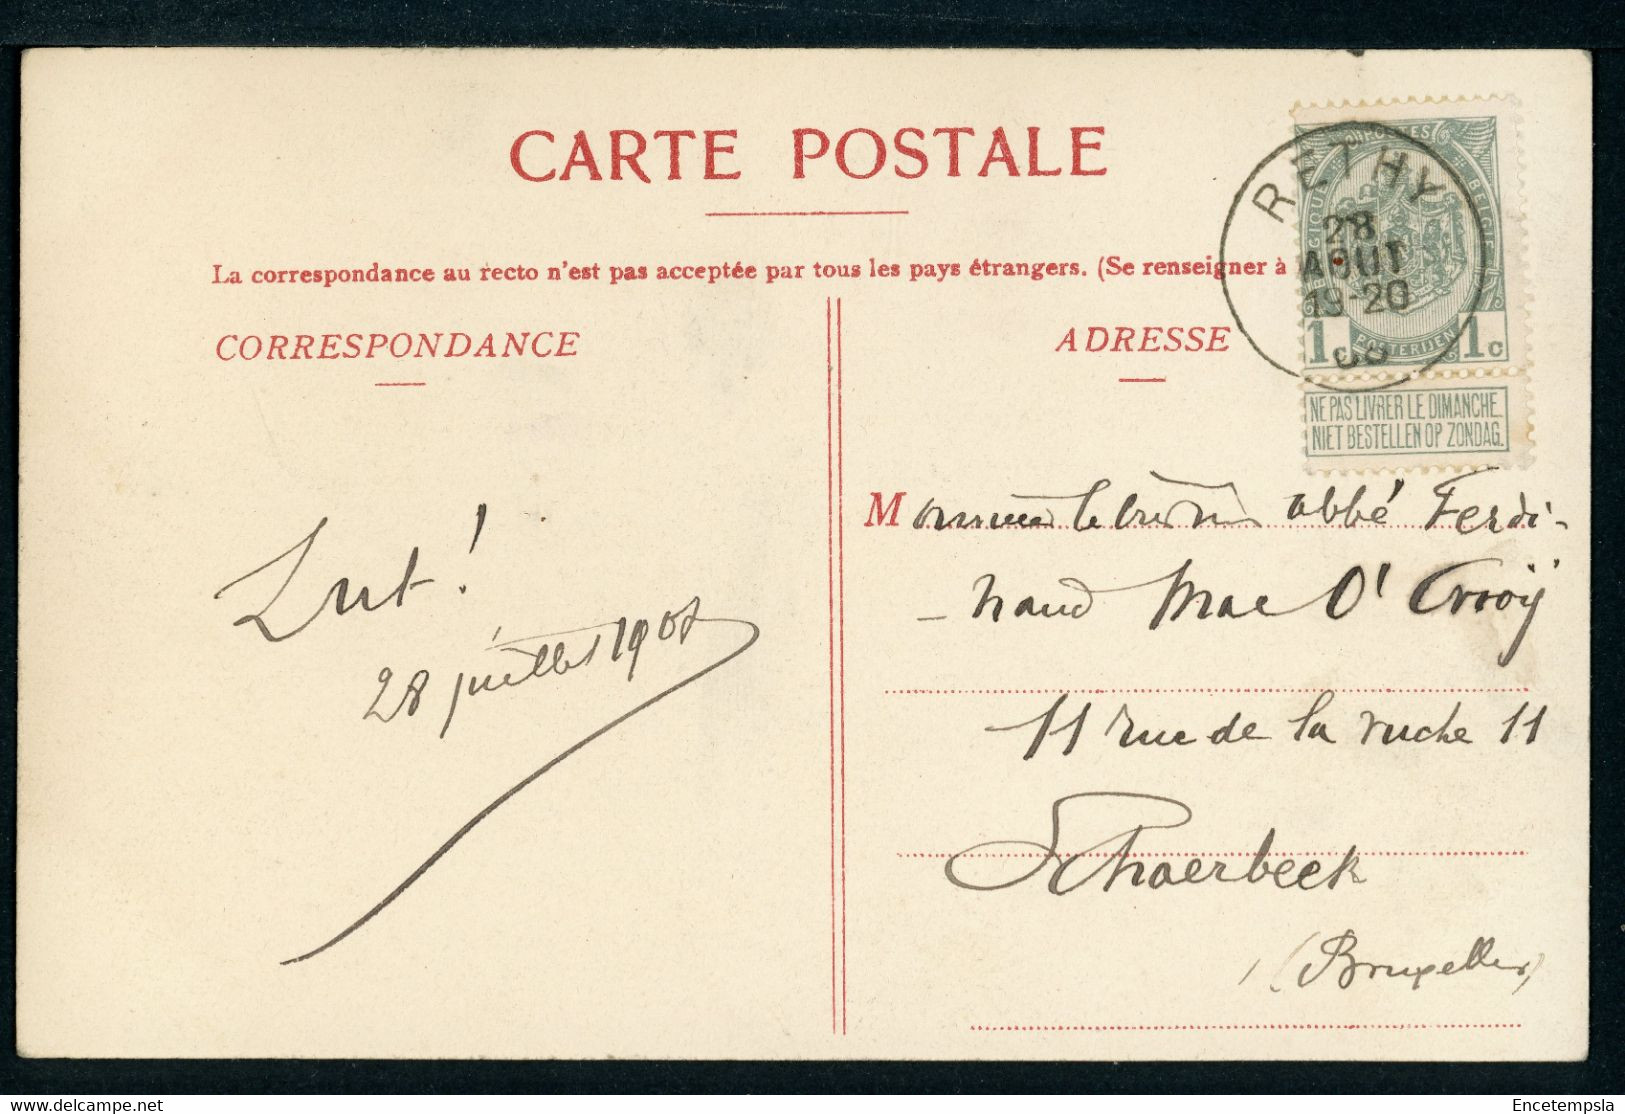 CARTE POSTALE
La correspondance au recto n'est pas acceptée par tous les pays étrangers. (Se renseigner à
CORRESPONDANCE
ADRESSE
RETHY
28
AOUT
19-20
08
POSTES
BELGIQUE
BELGIE
POSTERIJEN
1c 1c
NE PAS LIVRER LE DIMANCHE
NIET BESTELLEN OP ZONDAG.
Monsieur le abbé Ferdi-
- nand Mac O'
11 rue de la ruche 11
Schaerbeek
(Bruxelles)
28 juillet 1908
delcampe.net
Encetempsla